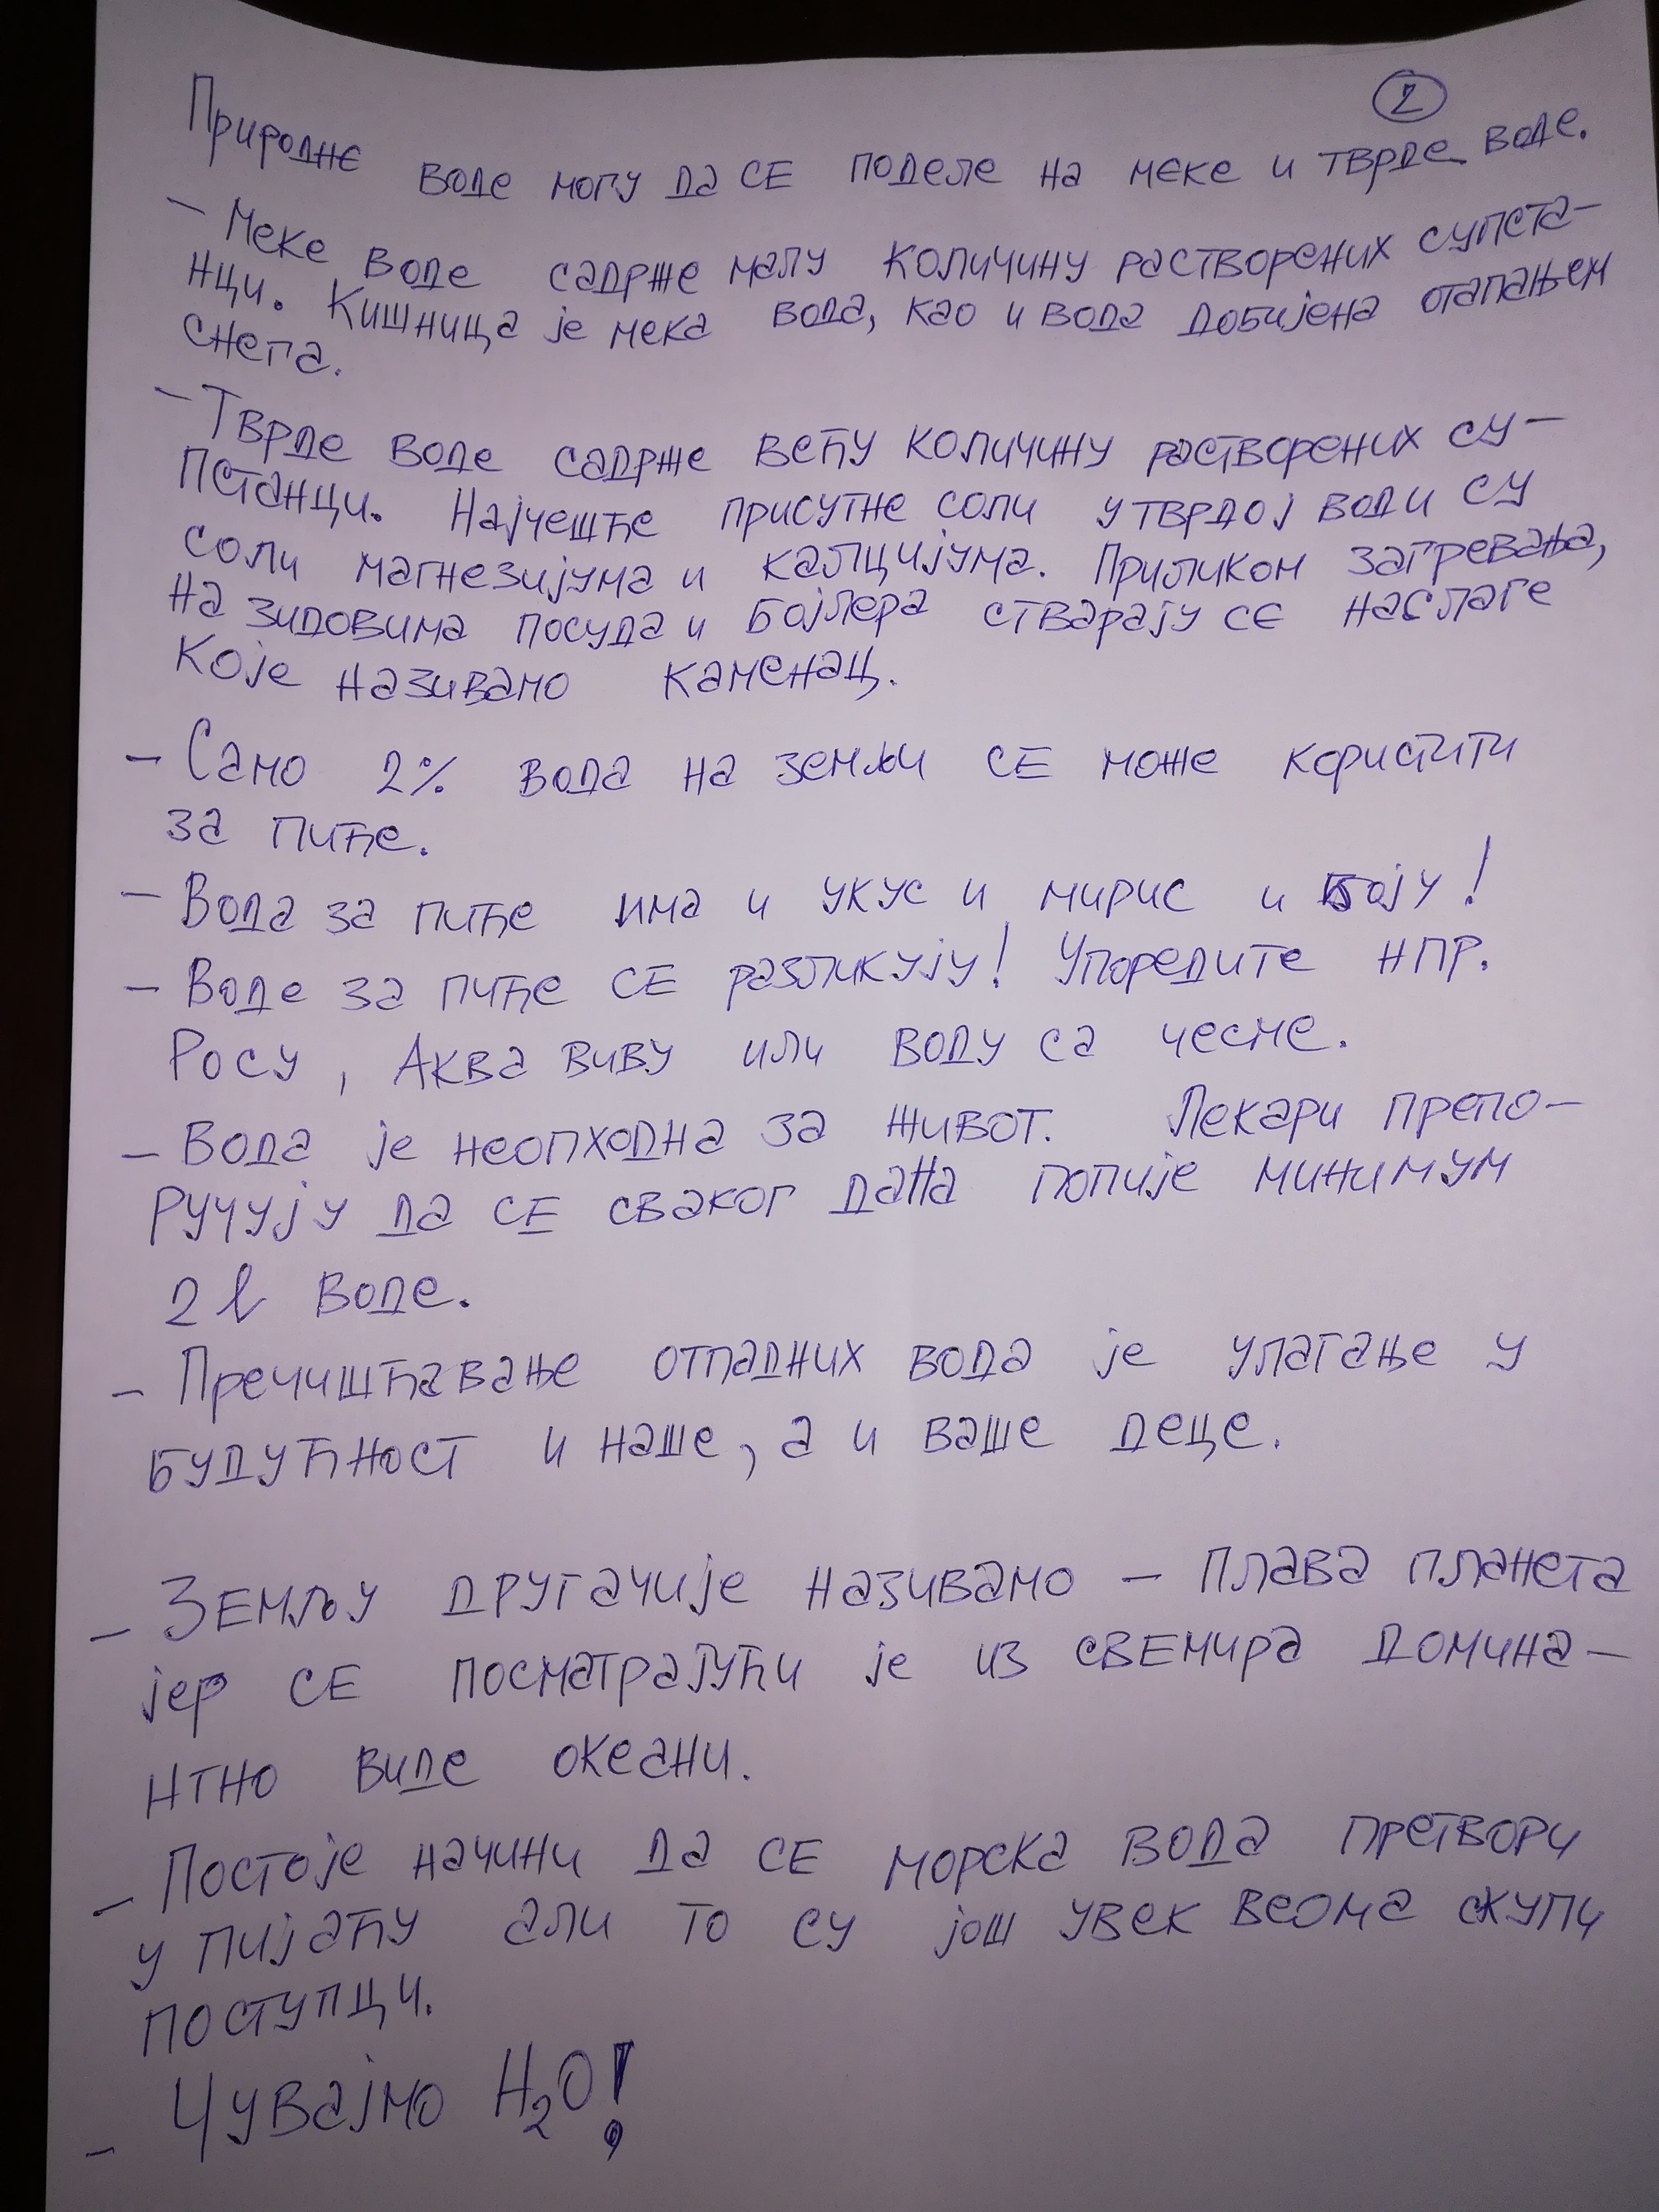 2
Природне воде могу да се поделе на меке и тврде воде.
- Меке воде садрже малу количину растворених супста-
нци. Кишница је мека вода, као и вода добијена отапањем
снега.
- Тврде воде садрже већу количину растворених су-
пстанци. Најчешће присутне соли у тврдој води су
соли магнезијума и калцијума. Приликом загревања,
на зидовима посуда и бојлера стварају се наслаге
које називамо каменац.
- Само 2% вода на земљи се може користити
за пиће.
- Вода за пиће има и укус и мирис и боју!
- Воде за пиће се разликују! Упоредите нпр.
Росу, Аква виву или воду са чесме.
- Вода је неопходна за живот. Лекари препо-
ручују да се сваког дана попије минимум
2 l воде.
- Пречишћавање отпадних вода је улагање у
будућност и наше, а и ваше деце.
- Земљу другачије називамо - плава планета
јер се посматрајући је из свемира домина-
нтно виде океани.
- Постоје начини да се морска вода претвори
у пијаћу али то су још увек веома скупи
поступци.
- Чувајмо H₂O!